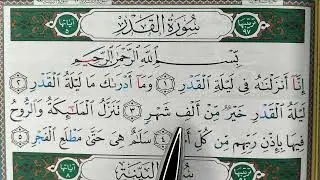 سُورَةُ الْقَدْرِ
بِسْمِ اللَّهِ الرَّحْمَٰنِ الرَّحِيمِ
إِنَّا أَنزَلْنَاهُ فِي لَيْلَةِ الْقَدْرِ ١ وَمَا أَدْرَاكَ مَا لَيْلَةُ الْقَدْرِ ٢
لَيْلَةُ الْقَدْرِ خَيْرٌ مِّنْ أَلْفِ شَهْرٍ ٣ تَنَزَّلُ الْمَلَائِكَةُ وَالرُّوحُ
فِيهَا بِإِذْنِ رَبِّهِم مِّن كُلِّ ٤ سَلَامٌ هِيَ حَتَّى مَطْلَعِ الْفَجْرِ ٥
سُورَةُ الْبَيِّنَةِ